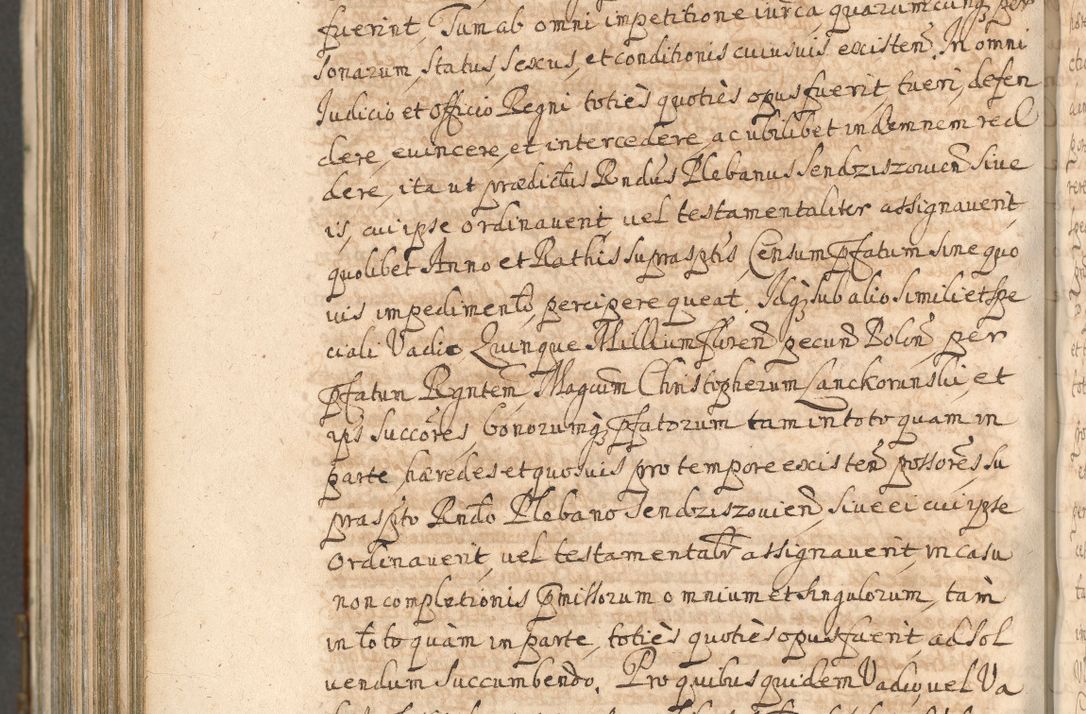 fuerint, Tum ab omni impetitione iurca, quarumcunq per
sonarum, status, sexus, et conditionis cuiusuis existen. In omni
Iudicio et officio Regni totiès quotiès opus fuerit, tueri, defen
dere, euincere, et intercedere, ac ubilibet indemnem red
dere, ita ut prædictus Rndus Plebanus Sendziszouien siue
is, cui ipse ordinauerit, uel testamentaliter assignauerit
quolibet Anno et Rathis suprasptis, Censum pfatum sine quo
uis impedimento, percipere queat. Idq sub alio simili et spe
ciali Vadio Quinque Millium floren pecun Polon, per
pfatum Rgntem, Magcum Christopherum Lanckorunski, et
ips succores, bonorumq pfatorum tam in toto quam in
parte hæredes et quosuis pro tempore existen possores su
praspto Rndo Plebano Sendziszouien, siue ei cui ipse
Ordinauerit, uel testamentalr assignauerit, in casu
non completionis pmissorum omnium et singulorum, tam
in toto quàm in parte, totiès quotiès opus fuerit, ad sol
uendum succumbendo. Pro quibus quidem Vadio, uel Va